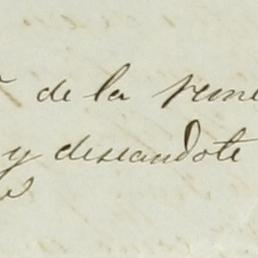 de la
y deseandote